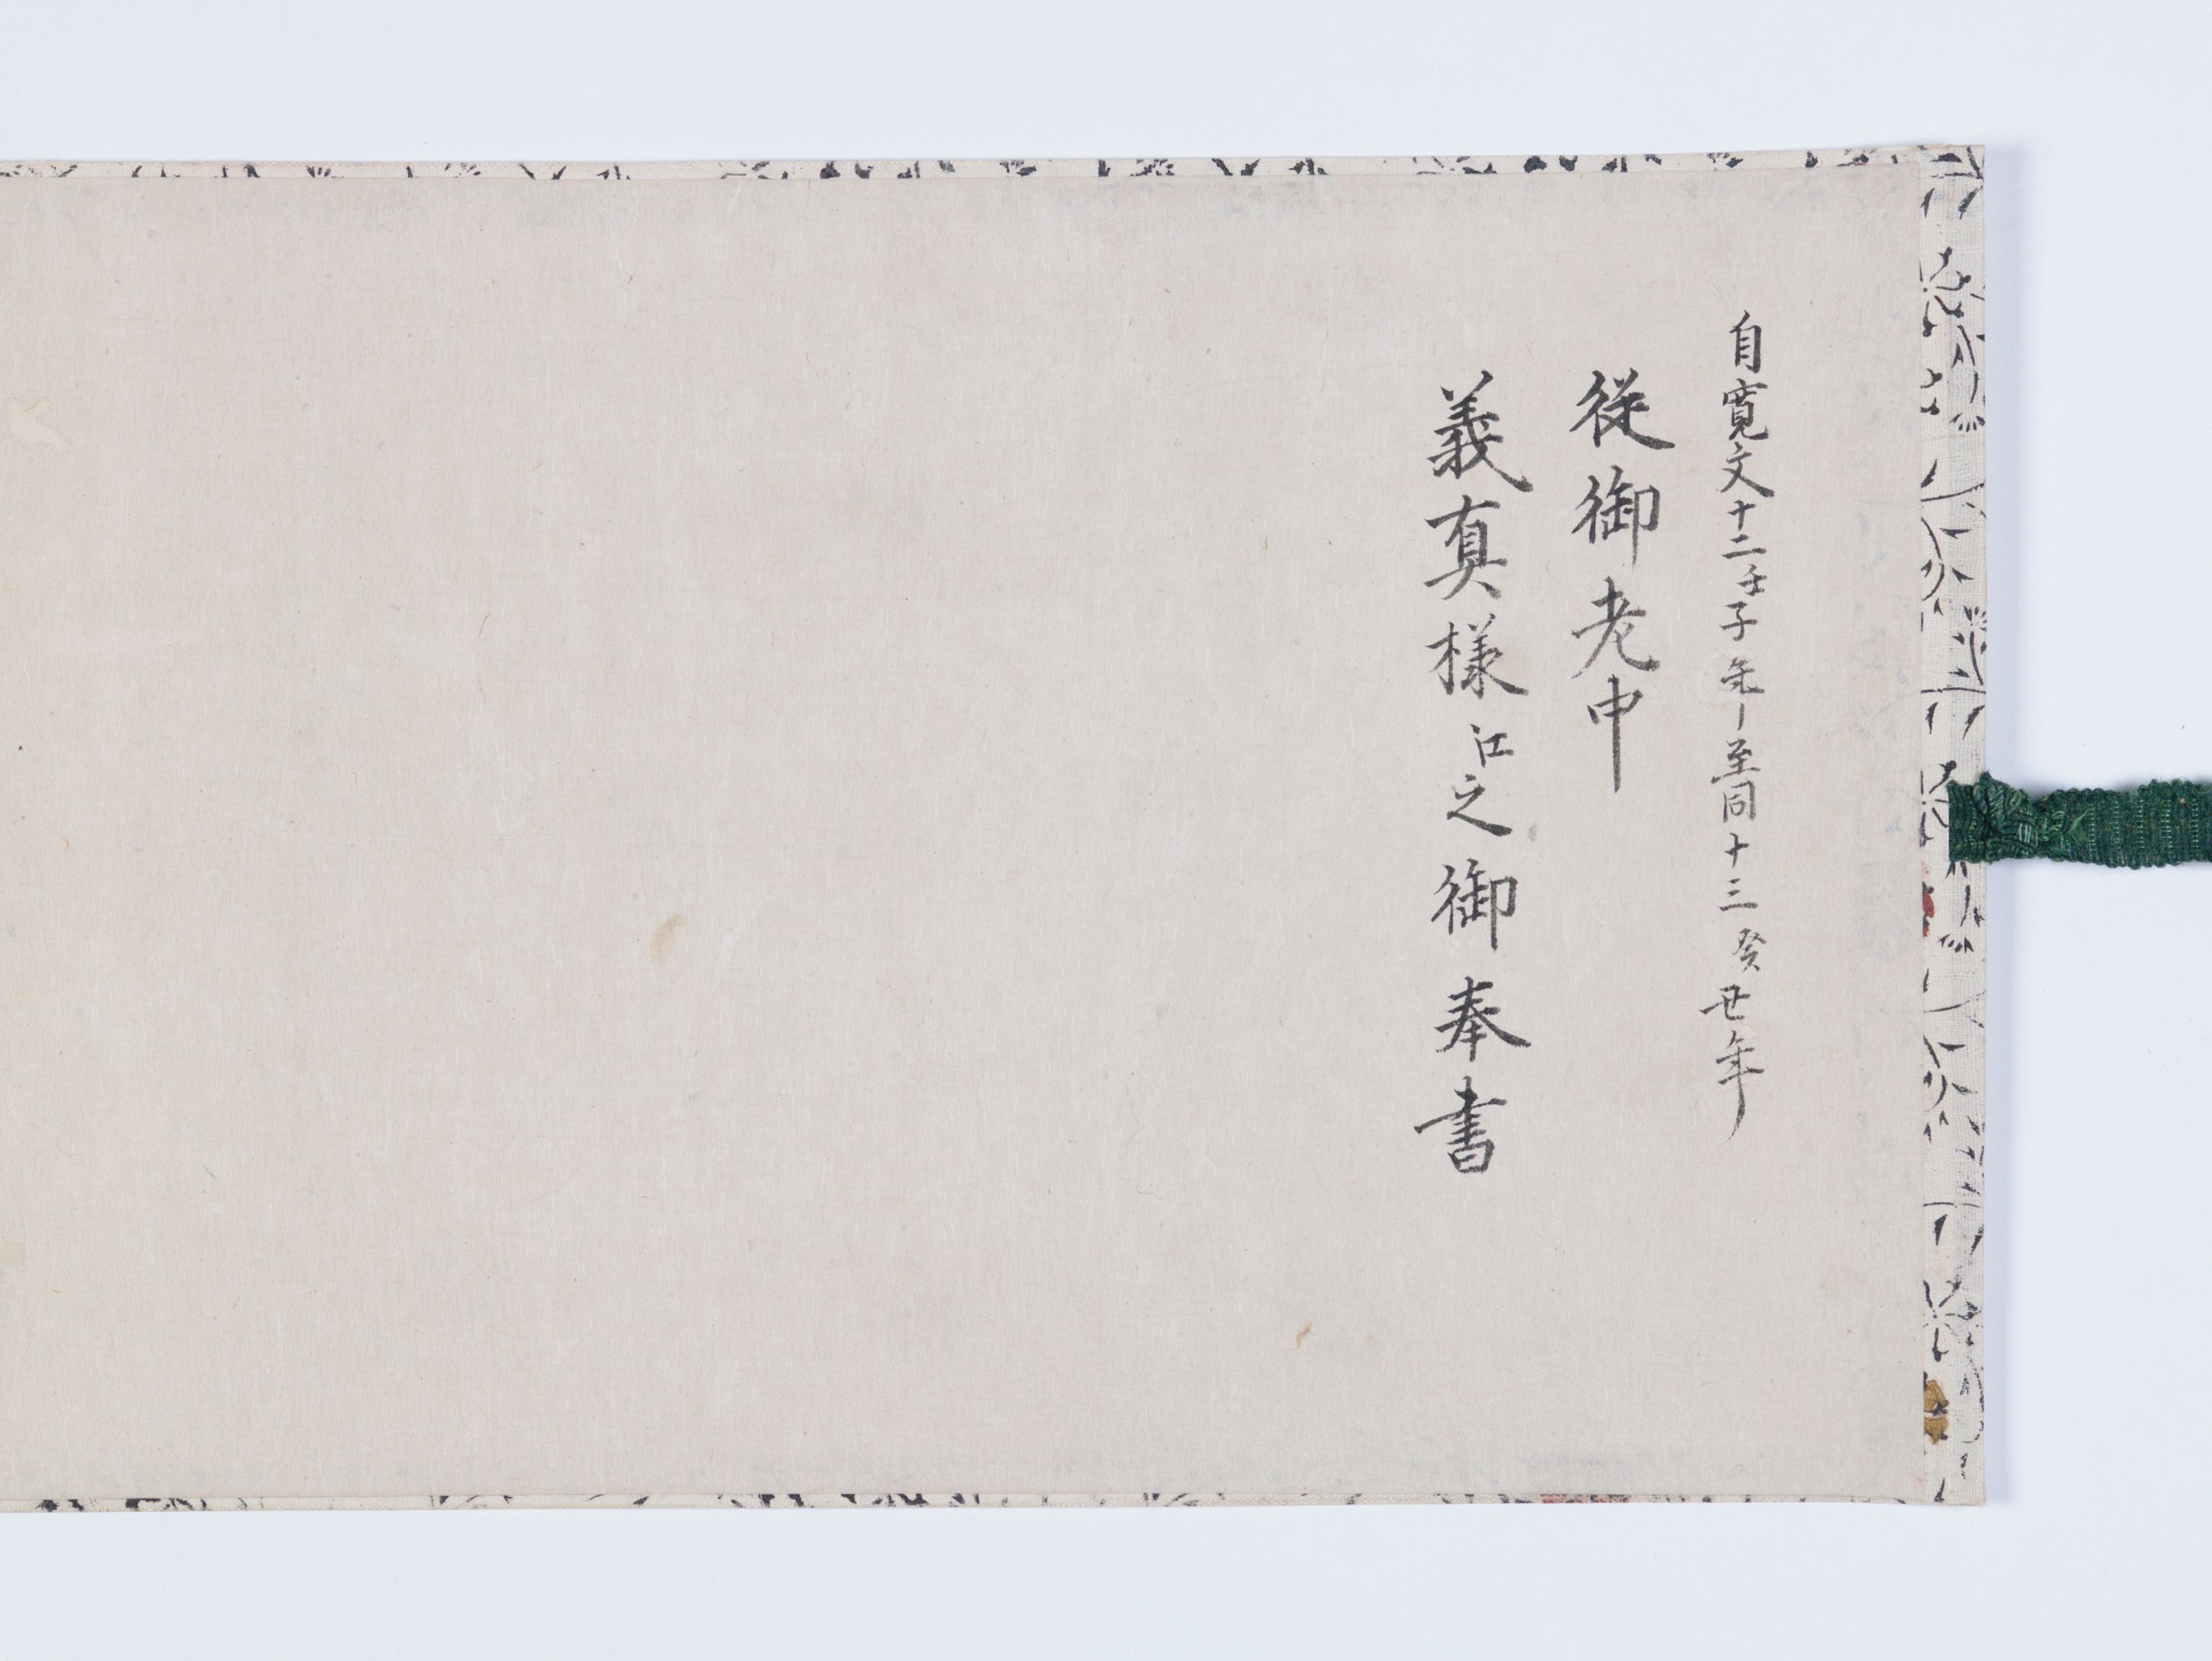 自寛文十二壬子年至同十三癸丑年
従御老中
義真様江之御奉書